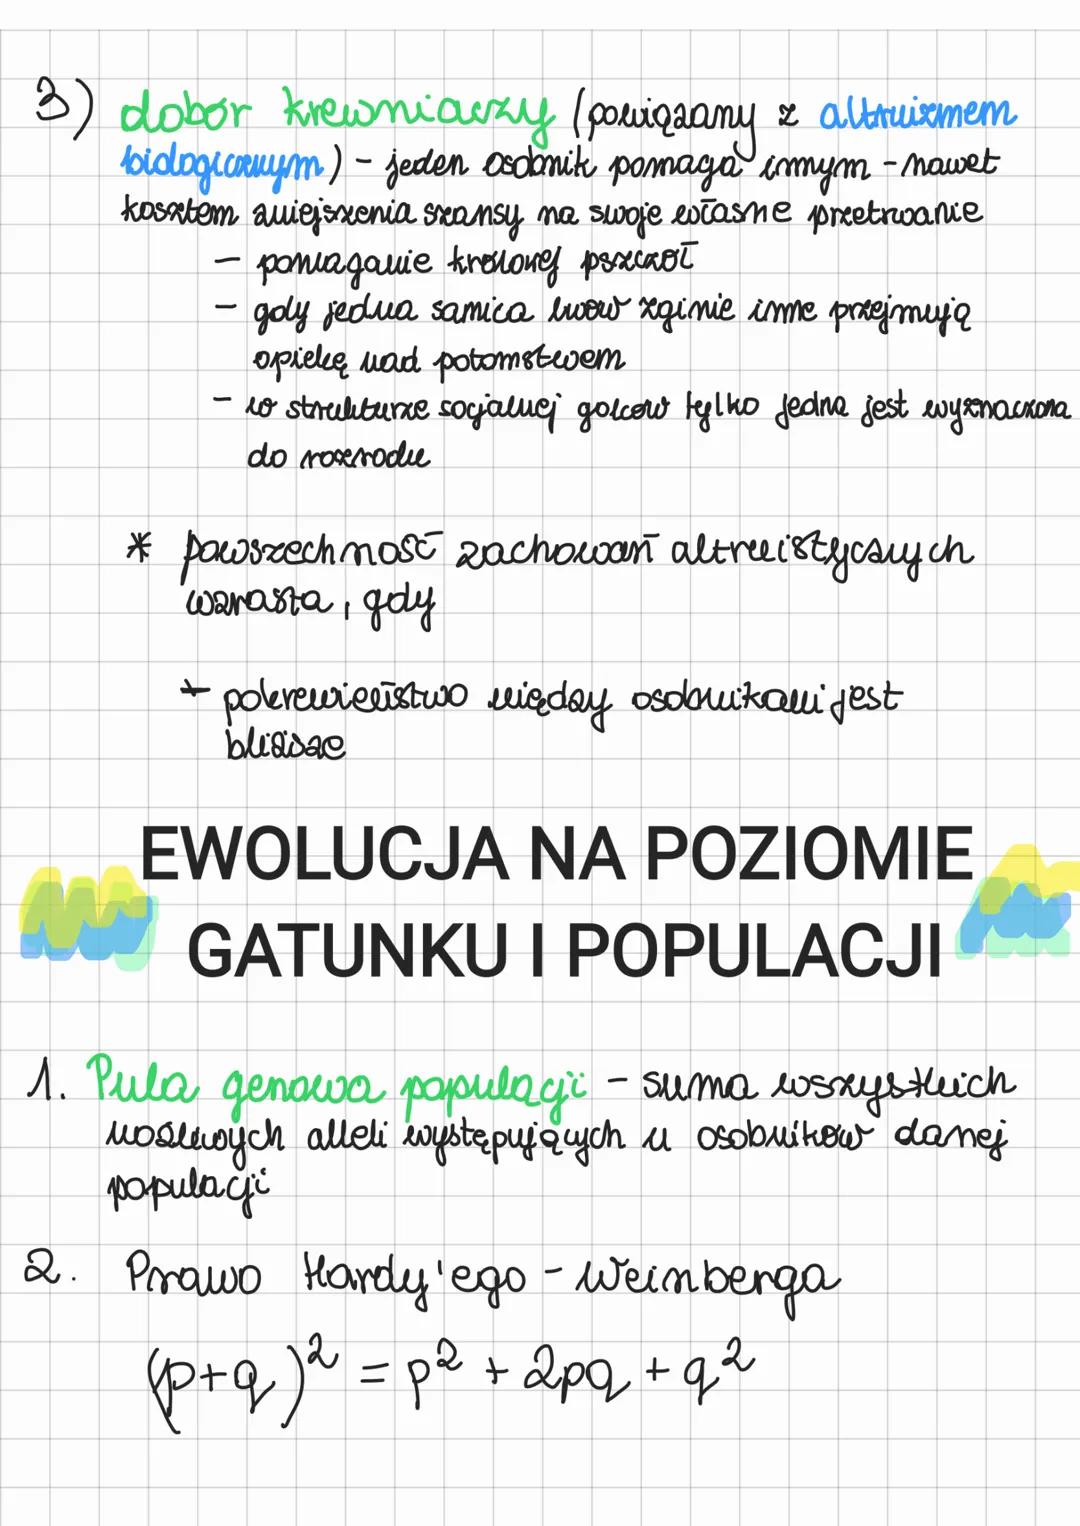 3) dobór krewniaczy (powiązany z altruizmem
biologicznym) - jeden osobnik pomaga innym - nawet
kosztem zmiejszenia szansy na swoje własne przetrwanie
- pomaganie królowej pszczół
- gdy jedna samica lwów zginie inne przejmują
opiekę nad potomstwem
- w strukturze socjalnej golców tylko jedna jest wyznaczona
do rozrodu
* powszechność zachowań altruistycznych
wzrasta, gdy
+ pokrewieństwo między osobnikami jest
bliższe
EWOLUCJA NA POZIOMIE
GATUNKU I POPULACJI
1. Pula genowa populacji - suma wszystkich
możliwych alleli występujących u osobników danej
populacji
2. Prawo Hardy'ego - Weinberga
(p+q)² = p² + 2pq + q²